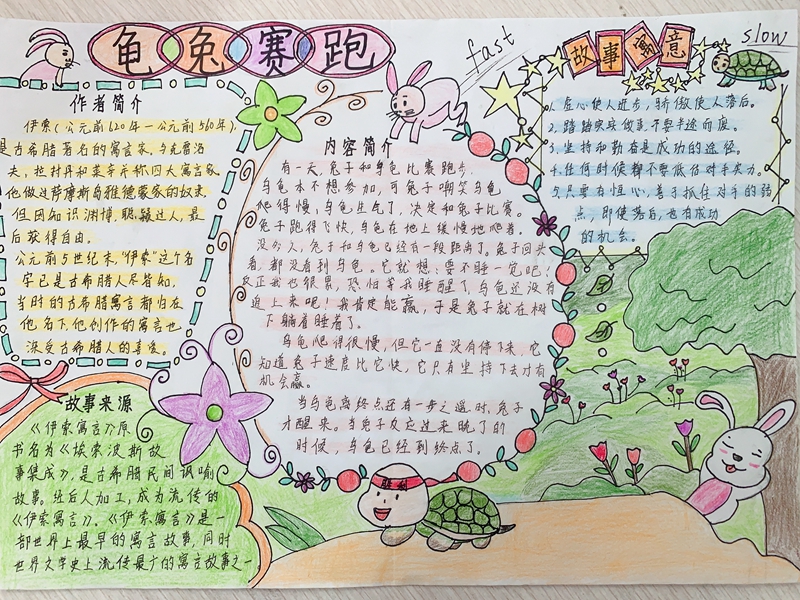 龟兔赛跑
fast
slow
作者简介
伊索(公元前620年—公元前560年),
是古希腊著名的寓言家,与克雷洛
夫,拉封丹和莱辛并称四大寓言家
他做过萨摩斯岛雅德蒙家的奴隶
但因知识渊博,聪颖过人,最
后获得自由。
公元前5世纪末,“伊索”这个名
字已是古希腊人尽皆知,
当时的古希腊寓言都归在
他名下,他创作的寓言也
深受古希腊人的喜爱。
故事来源
《伊索寓言》原
书名为《埃索波斯故
事集成》,是古希腊民间讽喻
故事。经后人加工,成为流传的
《伊索寓言》,《伊索寓言》是一
部世界上最早的寓言故事,同时
世界文学史上流传最广的寓言故事之一
内容简介
有一天,兔子和乌龟比赛跑步,
乌龟本不想参加,可兔子嘲笑乌龟
爬得慢,乌龟生气了,决定和兔子比赛。
兔子跑得飞快,乌龟在地上缓慢地爬着,
没多久,兔子和乌龟已经有一段距离了。兔子回头
看,都没看到乌龟。它就想:要不睡一觉吧!
反正我也很累,恐怕等我睡醒了,乌龟还没有
追上来呢!我肯定能赢,于是兔子就在树
下躺着睡着了。
乌龟爬得很慢,但它一直没有停下来,它
知道兔子速度比它快,它只有坚持下去才有
机会赢。
当乌龟离终点还有一步之遥时,兔子
才醒来。当兔子反应过来晚了的
时候,乌龟已经到终点了。
故事寓意
1.虚心使人进步,骄傲使人落后。
2.踏踏实实做事,不要半途而废。
3.坚持和勤奋是成功的途径。
4.任何时候都不要低估对手实力。
5.只要有恒心,善于抓住对手的弱
点,即使落后,也有成功
的机会。